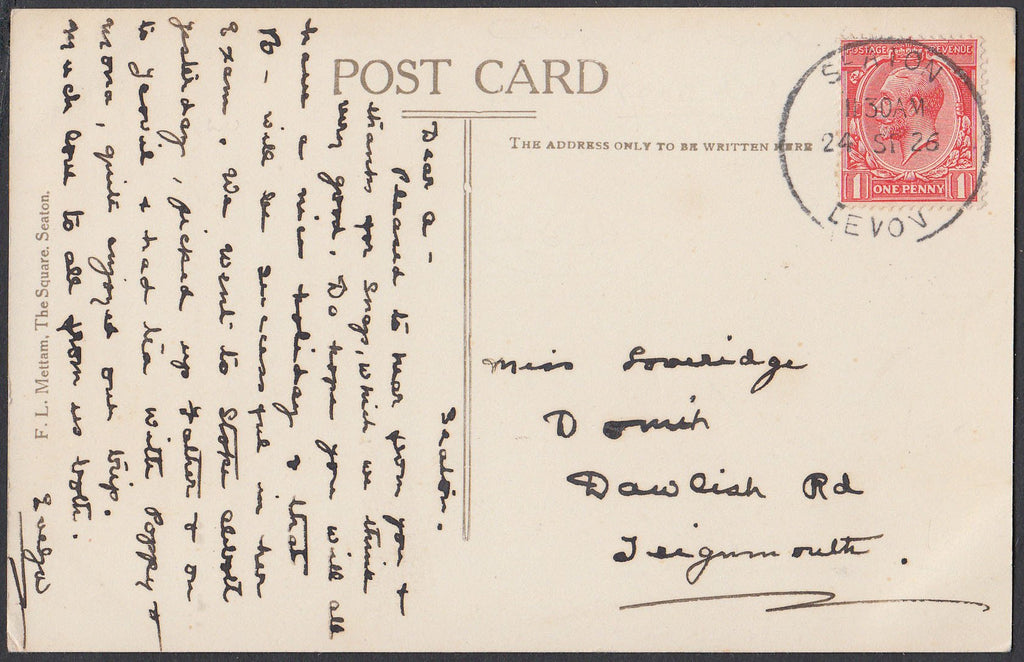 POST CARD
THE ADDRESS ONLY TO BE WRITTEN HERE
POSTAGE REVENUE
1 ONE PENNY 1
SEATON
1.30AM
24 SP 26
DEVON
Seaton.
Dear A -
Pleased to hear from you &
thanks for snaps, which we think
very good. Do hope you will all
have a nice holiday & that
B - will be successful in her
Exam. We went to Stoke
yesterday, picked up Father & on
to Yeovil & had tea with Poppy &
Mona, quite enjoyed our trip.
Much love to all from us both.
Miss Loveridge
Dawlish Rd
Teignmouth.
F. L. Mettam, The Square, Seaton.